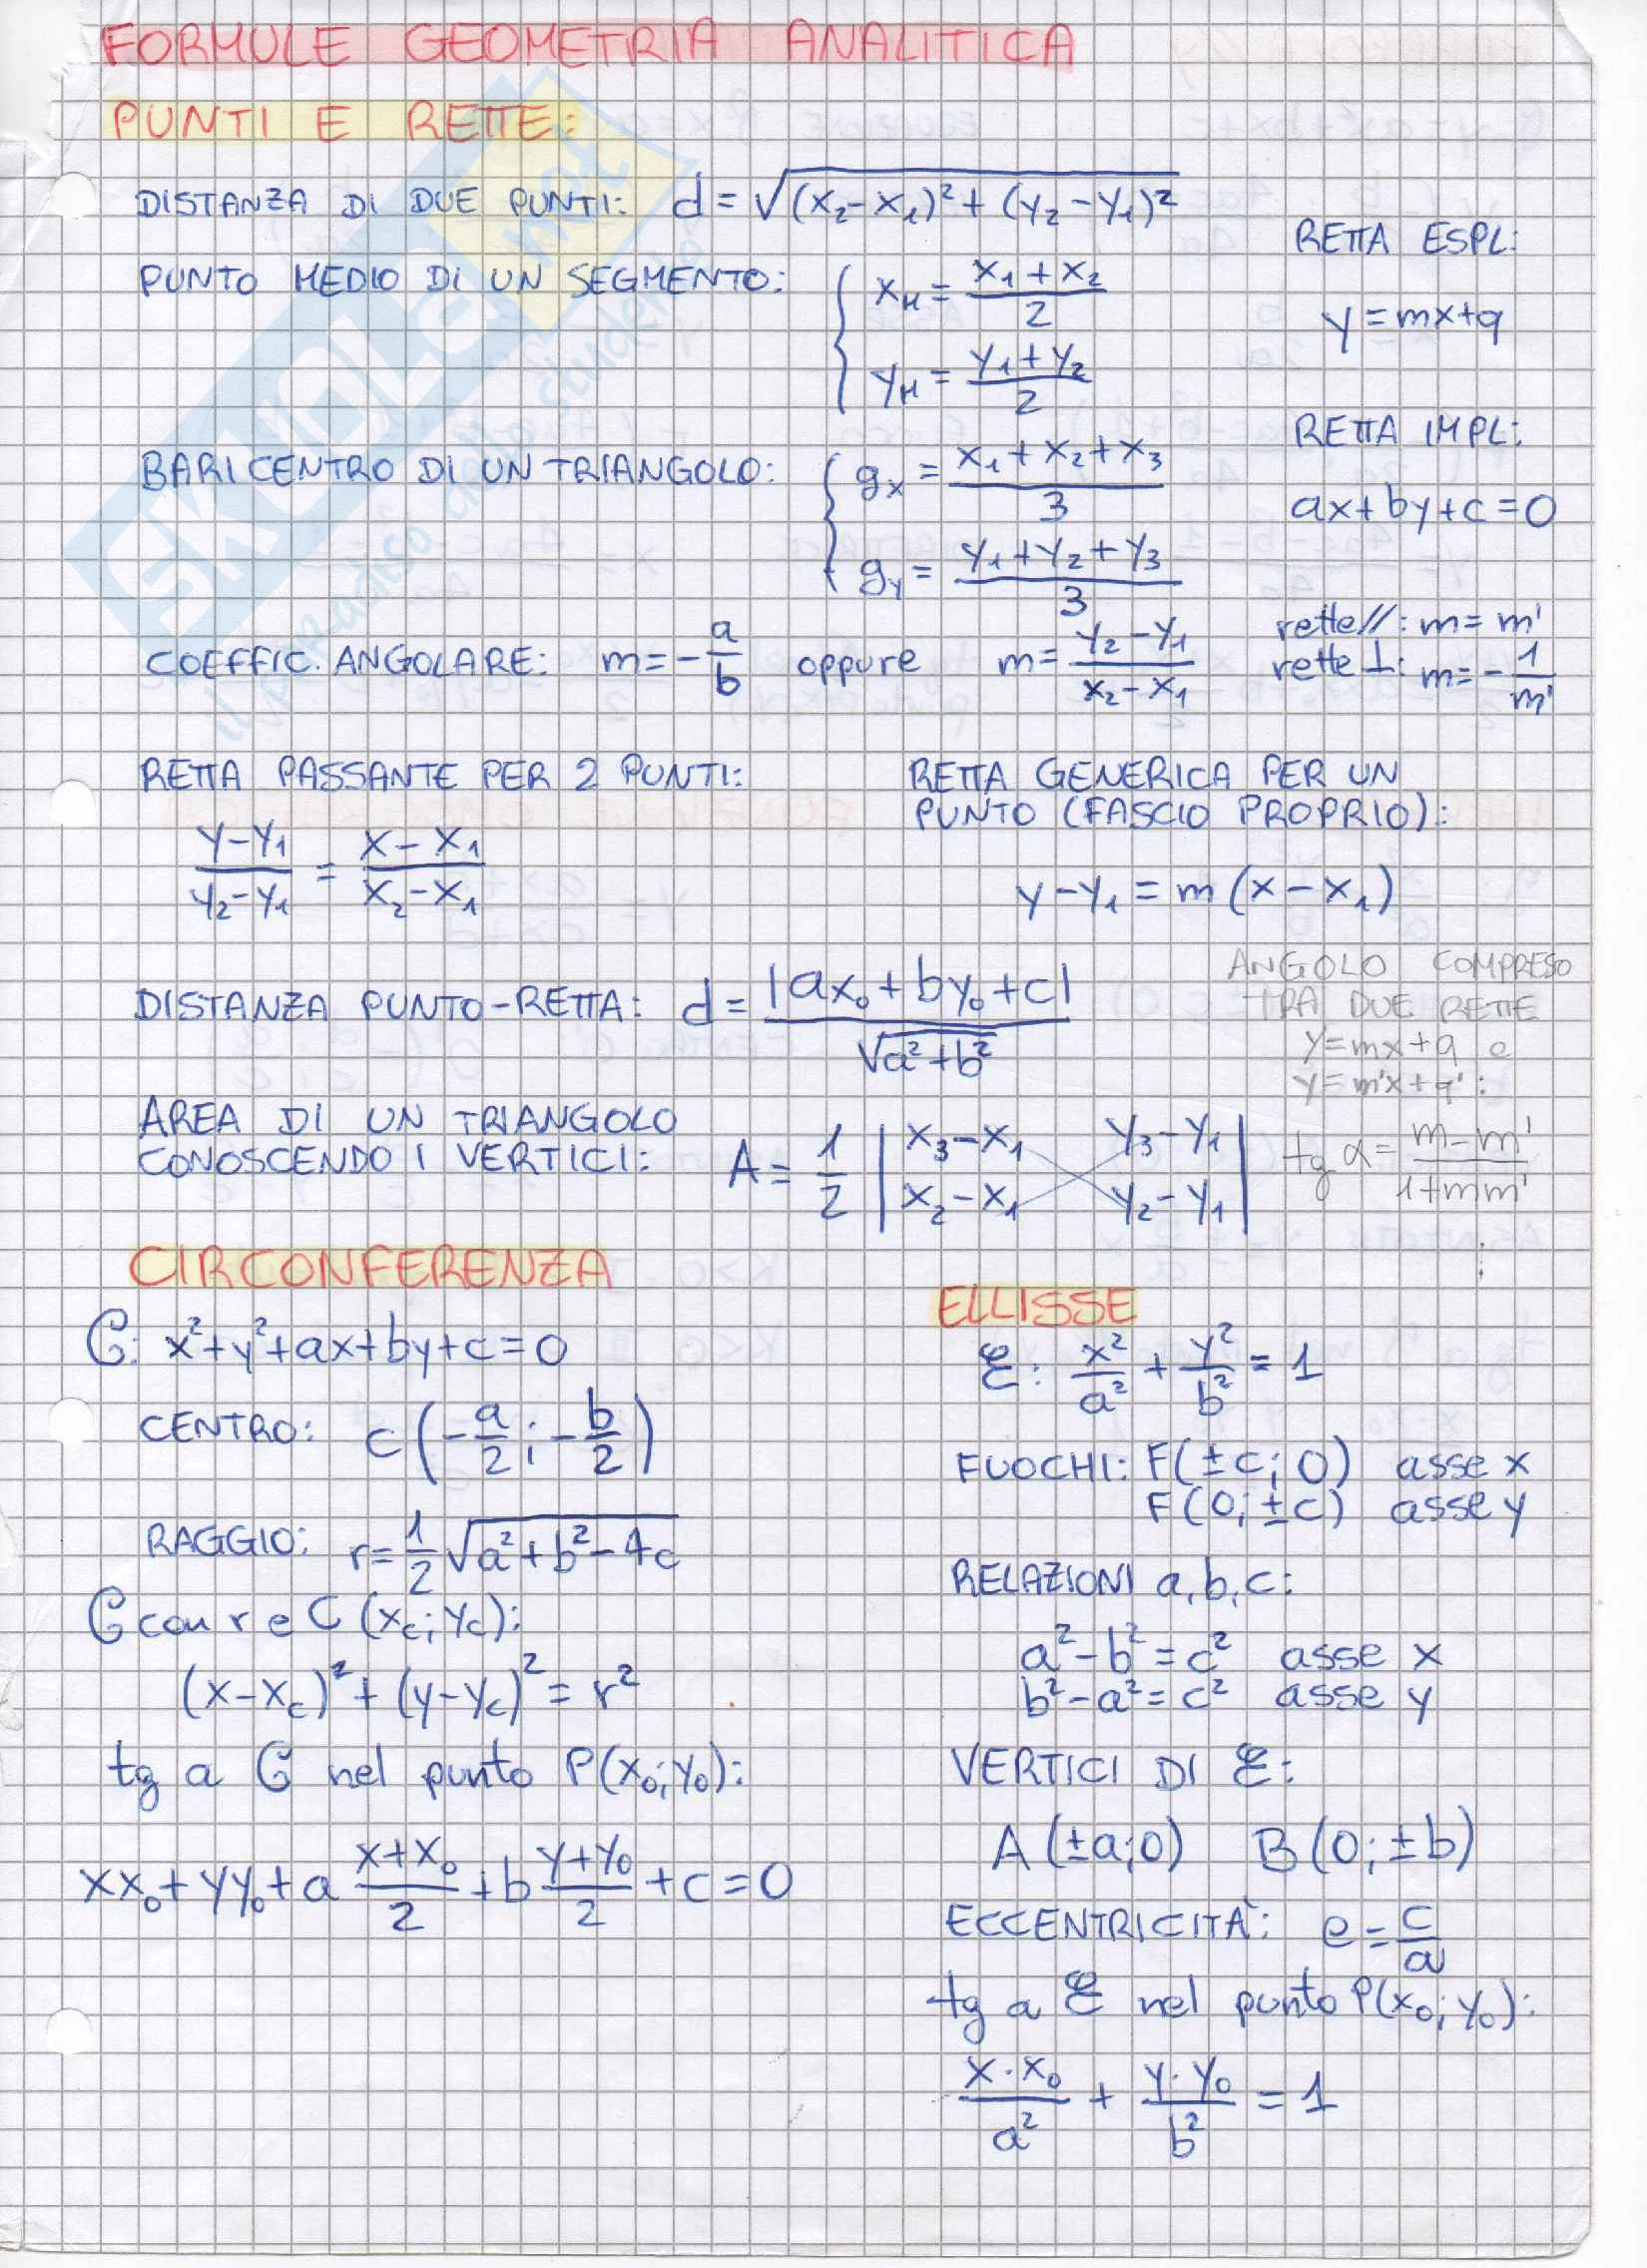 FORMULE GEOMETRIA ANALITICA
PUNTI E RETTE:
DISTANZA DI DUE PUNTI: d = √(x₂-x₁)² + (y₂-y₁)²
RETTA ESPL:
y = mx+q
PUNTO MEDIO DI UN SEGMENTO: { x_M = (x₁+x₂)/2
y_M = (y₁+y₂)/2
RETTA IMPL:
ax+by+c=0
BARICENTRO DI UN TRIANGOLO: { g_x = (x₁+x₂+x₃)/3
g_y = (y₁+y₂+y₃)/3
COEFFIC. ANGOLARE: m = -a/b oppure m = (y₂-y₁)/(x₂-x₁)
rette //: m = m'
rette ⊥: m = -1/m'
RETTA PASSANTE PER 2 PUNTI:
(y-y₁)/(y₂-y₁) = (x-x₁)/(x₂-x₁)
RETTA GENERICA PER UN
PUNTO (FASCIO PROPRIO):
y-y₁ = m(x-x₁)
DISTANZA PUNTO-RETTA: d = |ax₀+by₀+c|/√a²+b²
ANGOLO COMPRESO
TRA DUE RETTE
y=mx+q e
y=m'x+q':
tg α = (m-m')/(1+mm')
AREA DI UN TRIANGOLO
CONOSCENDO I VERTICI: A = 1/2 | x₃-x₁ y₃-y₁ |
| x₂-x₁ y₂-y₁ |
CIRCONFERENZA
C: x²+y²+ax+by+c=0
CENTRO: C(-a/2; -b/2)
RAGGIO: r = 1/2 √a²+b²-4c
C con r e C(x_c; y_c):
(x-x_c)² + (y-y_c)² = r²
tg a C nel punto P(x₀; y₀):
xx₀ + yy₀ + a (x+x₀)/2 + b (y+y₀)/2 + c = 0
ELLISSE
ℰ: x²/a² + y²/b² = 1
FUOCHI: F(±c; 0) asse x
F(0; ±c) asse y
RELAZIONI a, b, c:
a²-b² = c² asse x
b²-a² = c² asse y
VERTICI DI ℰ:
A(±a; 0) B(0; ±b)
ECCENTRICITÀ: e = c/a
tg a ℰ nel punto P(x₀; y₀):
x·x₀/a² + y·y₀/b² = 1
SKUOLA.net
il paradiso dello studente